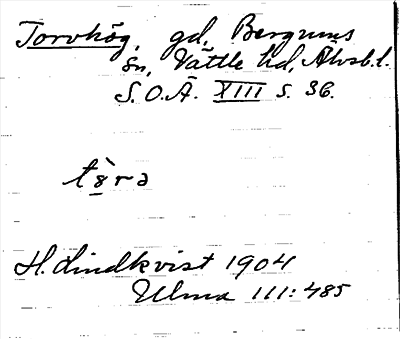 Torvhög, gd, Bergums
sn, Vättle hd, Älvsb.l.
S.O.Ä. XIII s. 36.
tè̱rə
H. Lindkvist 1904
Ulma 111:485